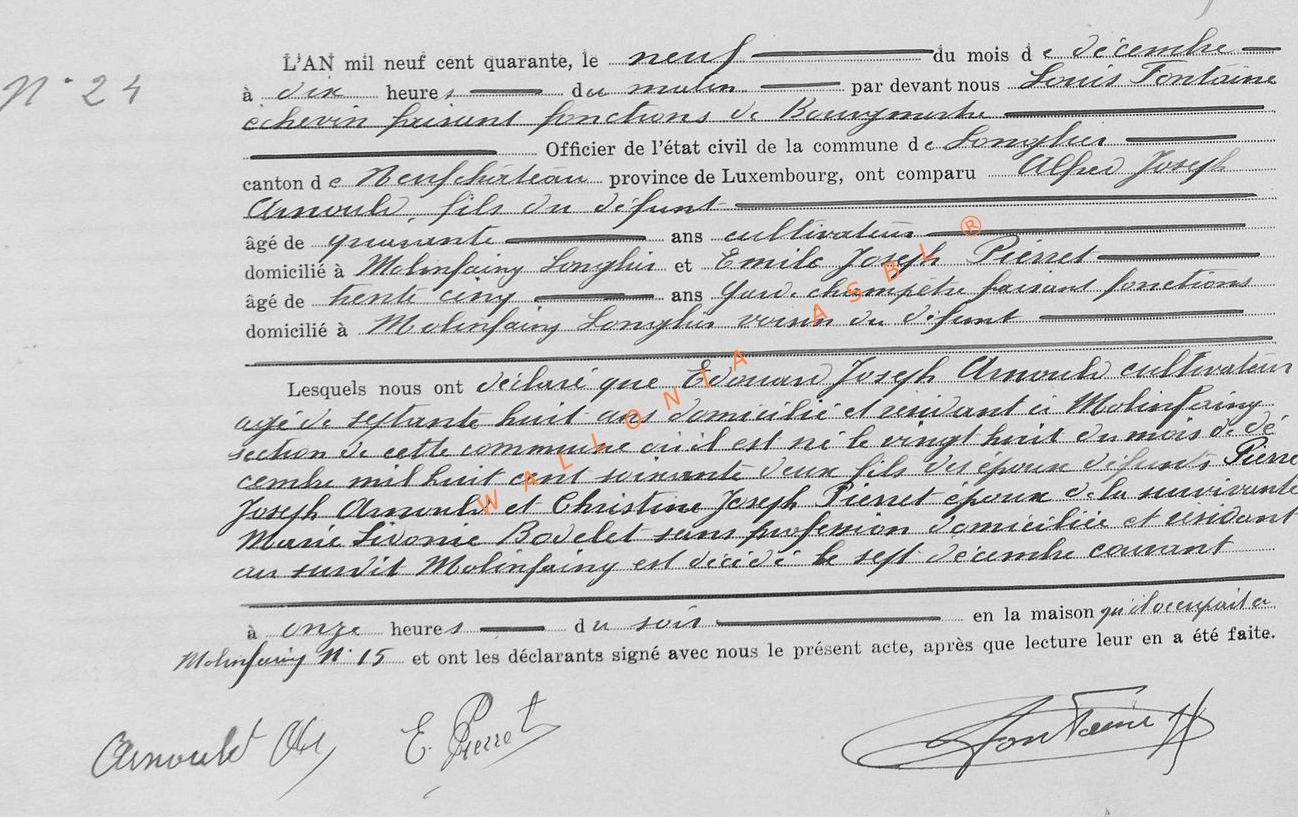 N° 24
L'AN mil neuf cent quarante, le neuf du mois de décembre
à dix heures du matin par devant nous Louis Fontaine
échevin faisant fonctions de Bourgmestre
Officier de l'état civil de la commune de Longlier
canton de Neufchâteau province de Luxembourg, ont comparu Alfred Joseph
Arnould, fils du défunt
âgé de quarante ans cultivateur
domicilié à Molinfaing Longlier et Emile Joseph Pierret
âgé de trente cinq ans garde champêtre faisant fonctions
domicilié à Molinfaing Longlier voisin du défunt
Lesquels nous ont déclaré que Edouard Joseph Arnould cultivateur
agé de septante huit ans domicilié et résidant à Molinfaing
section de cette commune où il est né le vingt huit du mois de dé
cembre mil huit cent soixante deux fils des époux défunts Pierre
Joseph Arnould et Christine Joseph Pierret époux de la survivante
Marie Sidonie Bodelet sans profession domiciliée et résidant
au susdit Molinfaing est décédé le sept décembre courant
à onze heures du soir en la maison qu'il occupait à
Molinfaing N° 15 et ont les déclarants signé avec nous le présent acte, après que lecture leur en a été faite.
Arnould E. Pierret Fontaine
WALLONIA ASBL ®